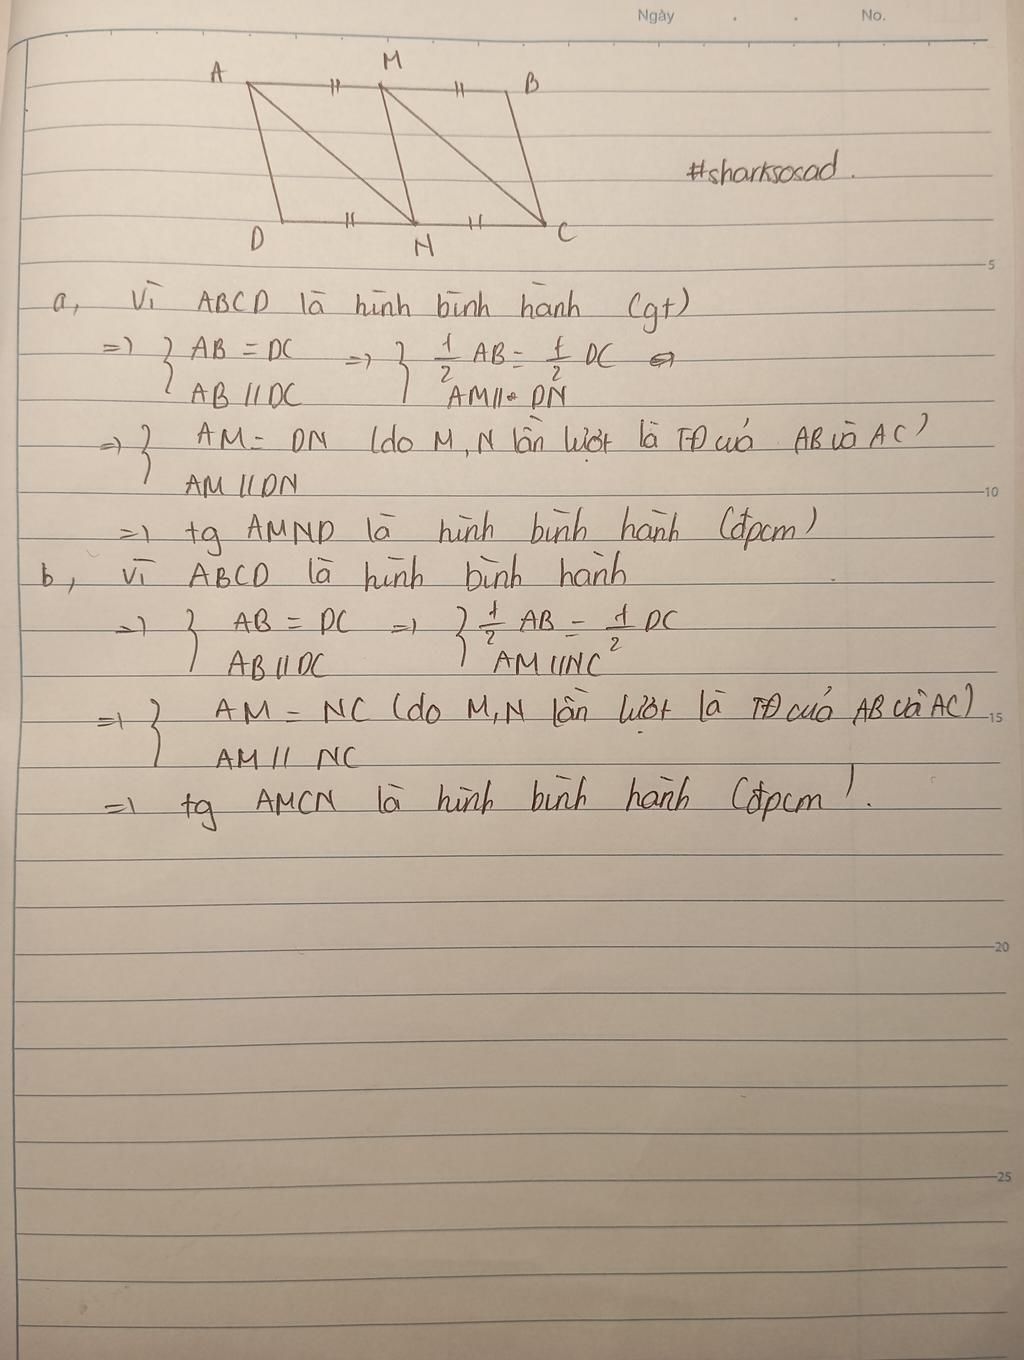 Ngày . . No.
A M B
#sharksosad.
D N C
5
a, Vì ABCD là hình bình hành (gt)
=> } AB = DC => } 1/2 AB = 1/2 DC
AB // DC AM // DN
=> } AM = DN (do M, N lần lượt là TĐ của AB và AC)
AM // DN
10
=> tg AMND là hình bình hành (đpcm)
b, Vì ABCD là hình bình hành
=> } AB = DC => } 1/2 AB = 1/2 DC
AB // DC AM // NC
=> } AM = NC (do M, N lần lượt là TĐ của AB và AC)
15
AM // NC
=> tg AMCN là hình bình hành (đpcm).
20
25